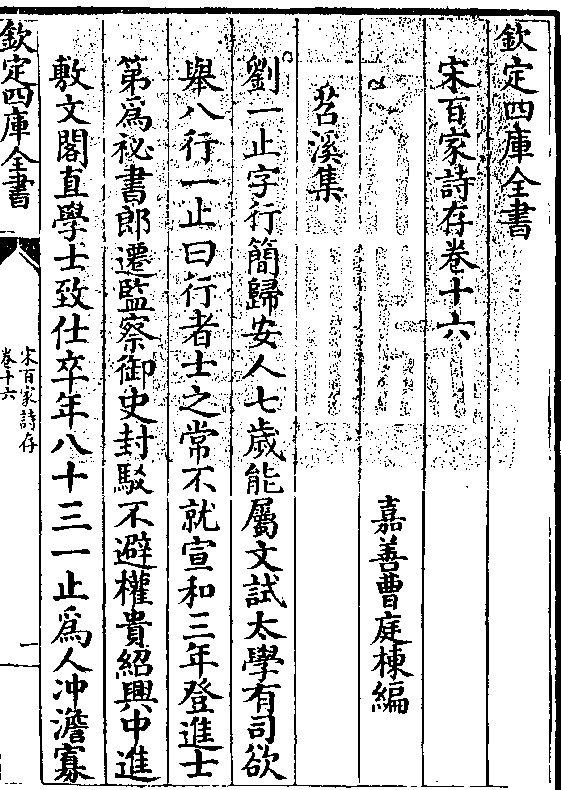 欽定四庫全書
宋百家詩存卷十六
嘉善曹庭棟編
苕溪集
劉一止字行簡歸安人七歲能屬文試太學有司欲
舉八行一止曰行者士之常不就宣和三年登進士
第為祕書郎遷監察御史封駁不避權貴紹興中進
敷文閣直學士致仕卒年八十三一止為人冲澹寡
欽定四庫全書
宋百家詩存
卷十六
一